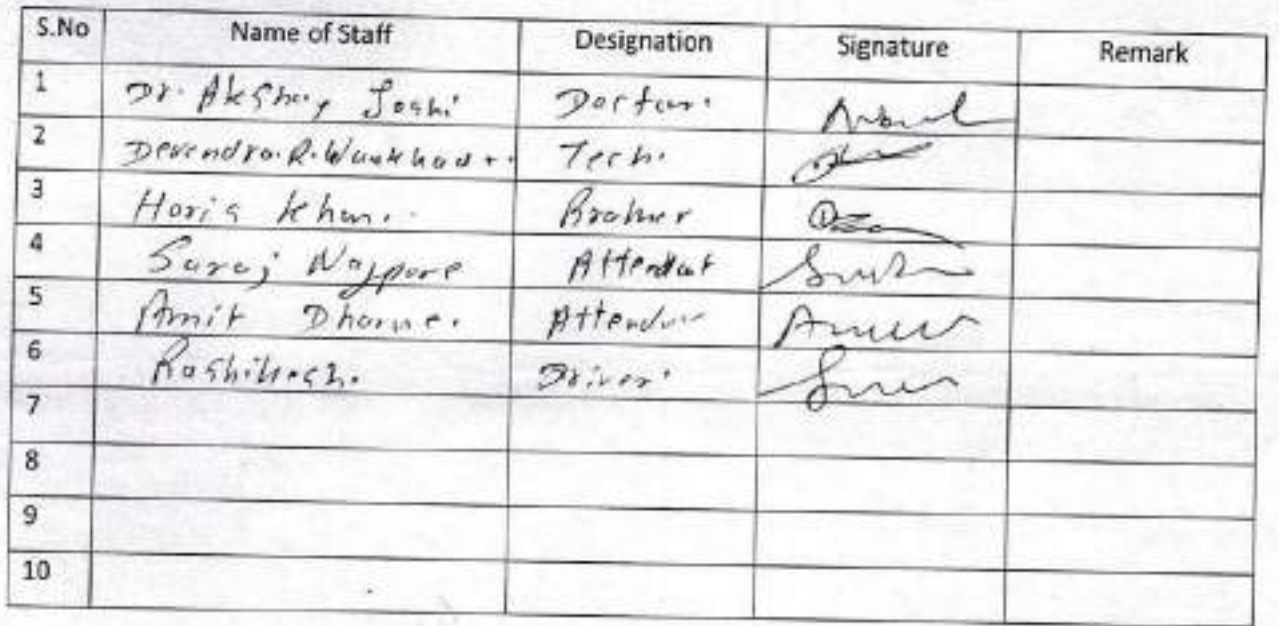 S.No Name of Staff Designation Signature Remark
1 Dr. Akshay Joshi Doctor.
2 Devendra.R. Tech.
3 Haris Khan. Brother
4 Suraj Nagpore Attendant
5 Amit Dhorne. Attendant
6 Rushikesh. Driver.
7
8
9
10